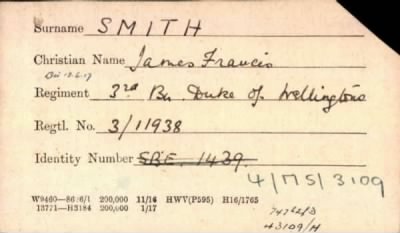 Surname SMITH
Christian Name James Francis
Regiment 3rd Bn Duke of Wellingtons
Regtl. No. 3/11938
Identity Number SBE. 1439.
4/MS/3109
W9460—8676/1 200,000 11/16 HWV(P595) H16/1765
13771—H3184 200,000 1/17
43109/H